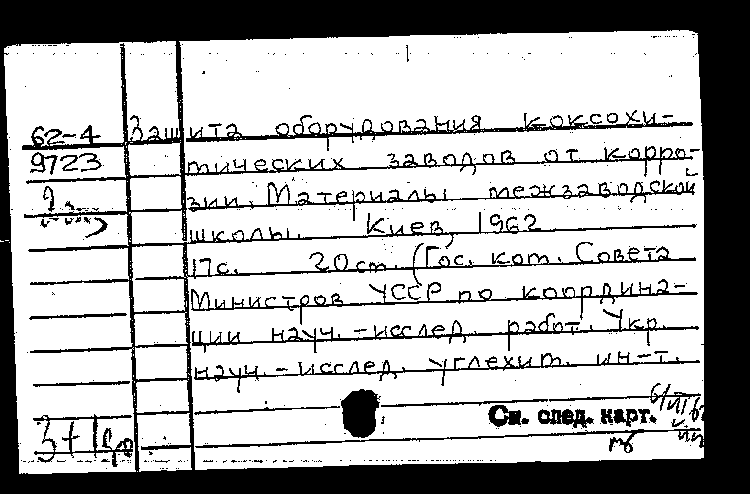 62-4 Защита оборудования коксохи-
9723 мических заводов от корро-
зии. Материалы межзаводской
школы. Киев, 1962
17с. 20см. (Гос. ком. Совета
Министров УССР по координа-
ции науч.-исслед. работ. Укр.
науч.-исслед. углехим. ин-т.
См. след. карт.